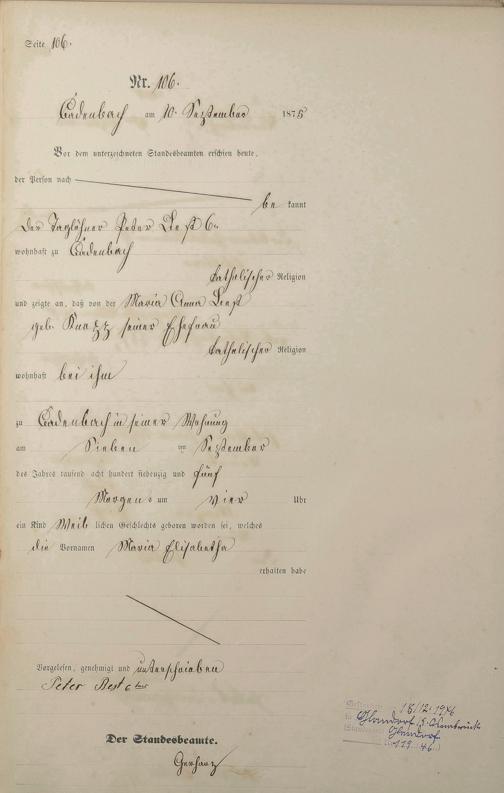 Seite 106.
Nr. 106.
Cadenbach am 10. September 1875
Vor dem unterzeichneten Standesbeamten erschien heute,
der Person nach
be kannt
der Taglöhner Peter
wohnhaft zu Cadenbach
katholischer Religion
und zeigte an, daß von der Maria Anna
geb. seiner Ehefrau
katholischer Religion
wohnhaft bei ihm
zu Cadenbach in seiner Wohnung
am Sieben ten September
des Jahres tausend acht hundert siebenzig und fünf
Morgens um vier Uhr
ein Kind Weib lichen Geschlechts geboren worden sei, welches
die Vornamen Maria Elisabetha
erhalten habe
Vorgelesen, genehmigt und unterschrieben
Peter
Der Standesbeamte.
Gerharz
18/12. 1946
Glandorf
Glandorf
119 46.